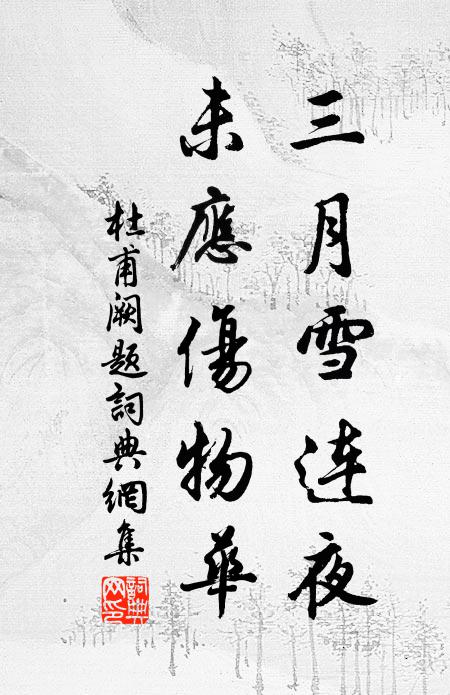 三月雪連夜
未應傷物華
杜甫闕題詞典網集
詞典